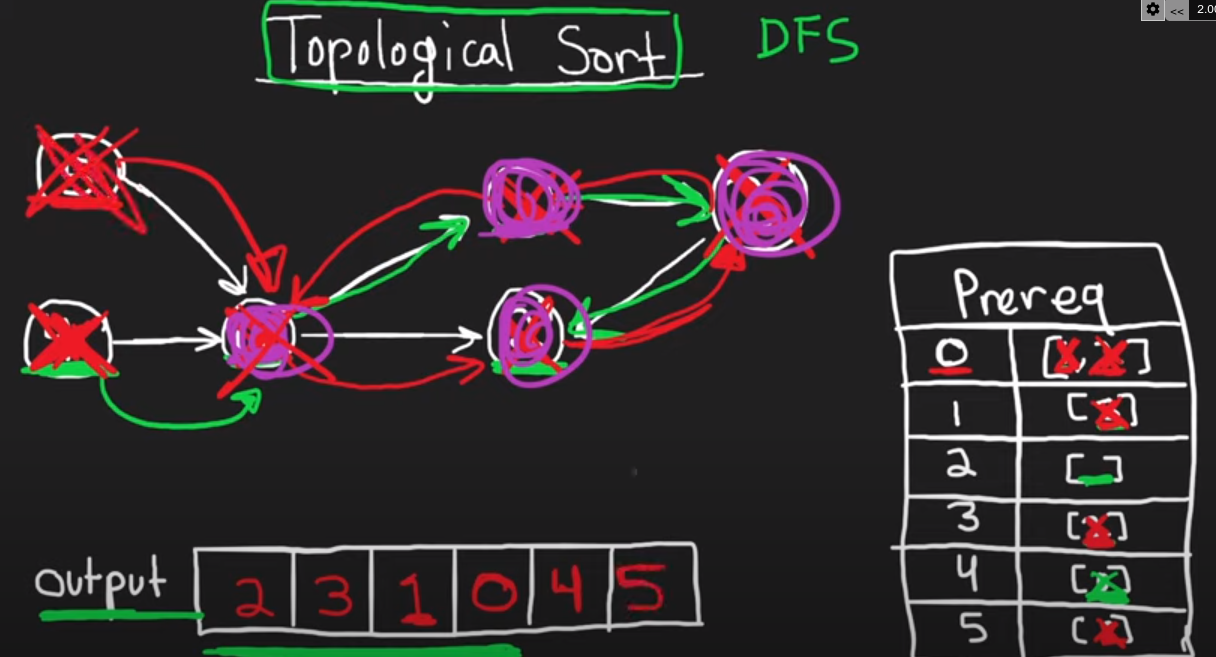 << 2.00
Topological Sort DFS
Prereq
0 [ , ]
1 [ ]
2 [ ]
3 [ ]
4 [ ]
5 [ ]
output 2 3 1 0 4 5